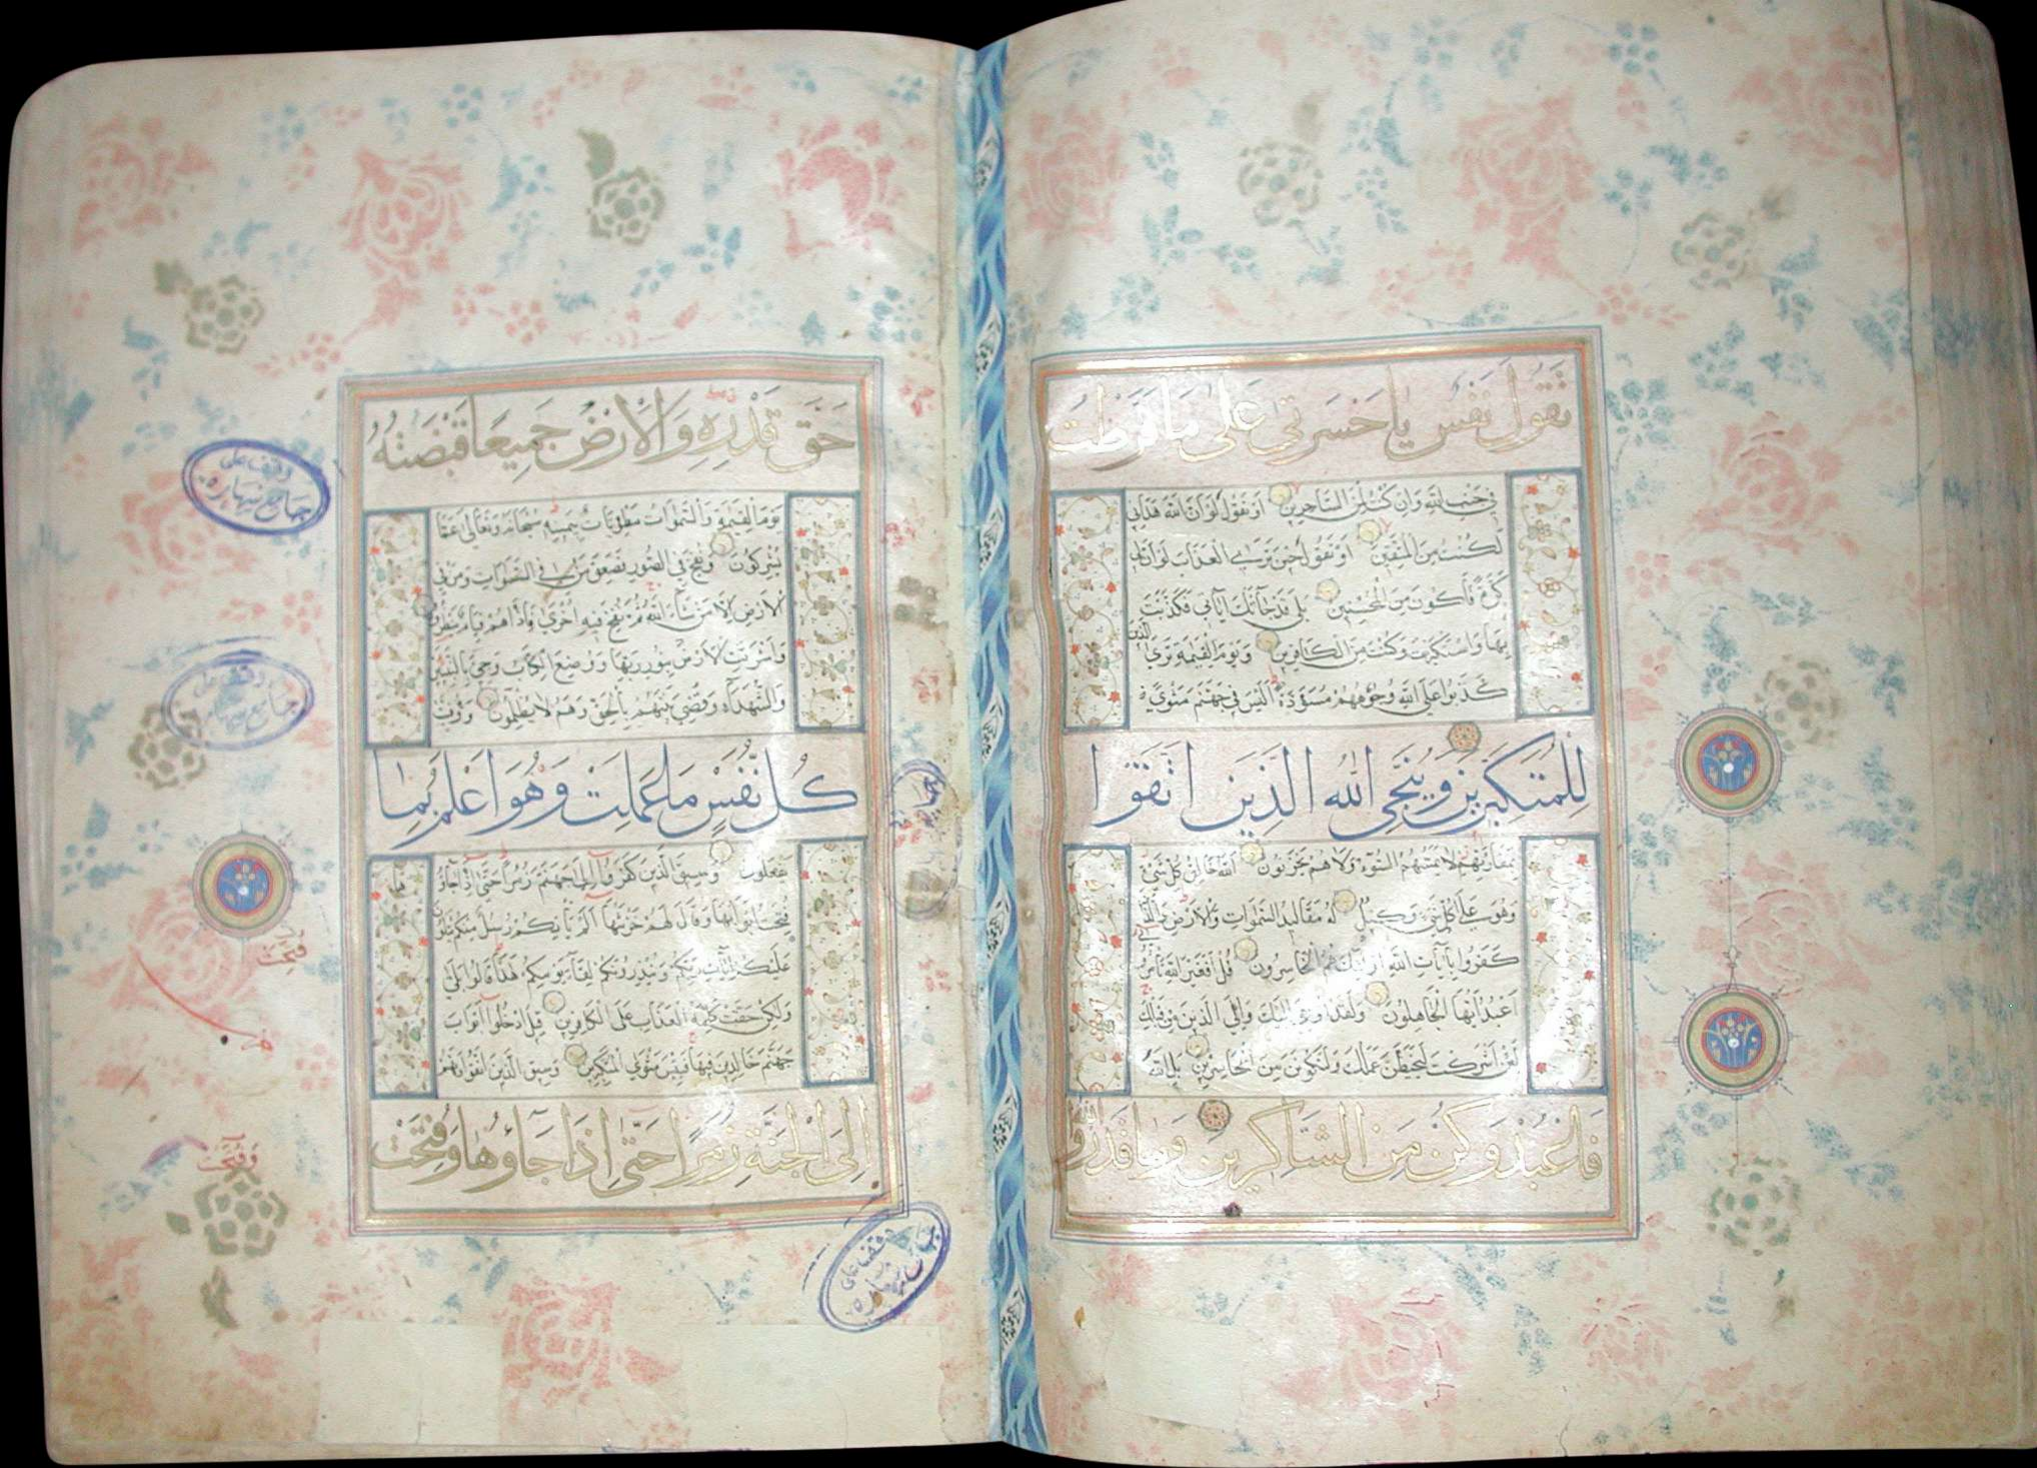 تقول نفس يا حسرتي على ما فرطت
في جنب الله وان كنت لمن الساخرين او تقول لو ان الله هداني
لكنت من المتقين او تقول حين ترى العذاب لو ان لي
كرة فاكون من المحسنين بلى قد جاءتك اياتي فكذبت
بها واستكبرت وكنت من الكافرين ويوم القيمة ترى الذين
كذبوا على الله وجوههم مسودة اليس في جهنم مثوى
للمتكبرين وينجي الله الذين اتقوا
بمفازتهم لا يمسهم السوء ولا هم يحزنون الله خالق كل شيء
وهو على كل شيء وكيل له مقاليد السموات والارض والذين
كفروا بايات الله اولئك هم الخاسرون قل افغير الله تأمروني
اعبد ايها الجاهلون ولقد اوحي اليك والى الذين من قبلك
لئن اشركت ليحبطن عملك ولتكونن من الخاسرين بل الله
فاعبد وكن من الشاكرين وما قدروا الله
حق قدره والارض جميعا قبضته
يوم القيمة والسموات مطويات بيمينه سبحانه وتعالى عما
يشركون ونفخ في الصور فصعق من في السموات ومن في
الارض الا من شاء الله ثم نفخ فيه اخرى فاذا هم قيام ينظرون
واشرقت الارض بنور ربها ووضع الكتاب وجيء بالنبيين
والشهداء وقضي بينهم بالحق وهم لا يظلمون ووفيت
كل نفس ما عملت وهو اعلم بما
يفعلون وسيق الذين كفروا الى جهنم زمرا حتى اذا جاؤها
فتحت ابوابها وقال لهم خزنتها الم يأتكم رسل منكم يتلون
عليكم ايات ربكم وينذرونكم لقاء يومكم هذا قالوا بلى
ولكن حقت كلمة العذاب على الكافرين قيل ادخلوا ابواب
جهنم خالدين فيها فبئس مثوى المتكبرين وسيق الذين اتقوا ربهم
الى الجنة زمرا حتى اذا جاؤها وفتحت
وقف على
جامع
فتحت
وفتحت
وقف على